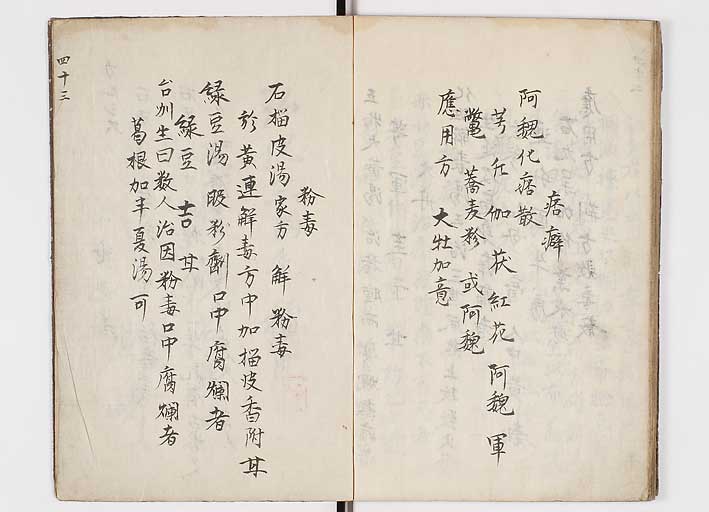 痞癖
阿魏化痞散
芎 朮 伽 茯 紅花 阿魏 軍
鼈 蕎麦粉 或阿魏
應用方 大牡加意
粉毒
石榴皮湯家方 解粉毒
於黄連解毒方中加榴皮香附甘
緑豆湯 服粉劑口中腐爛者
緑豆 吉 甘
台州生曰数人治因粉毒口中腐爛者
葛根加半夏湯可
四十三